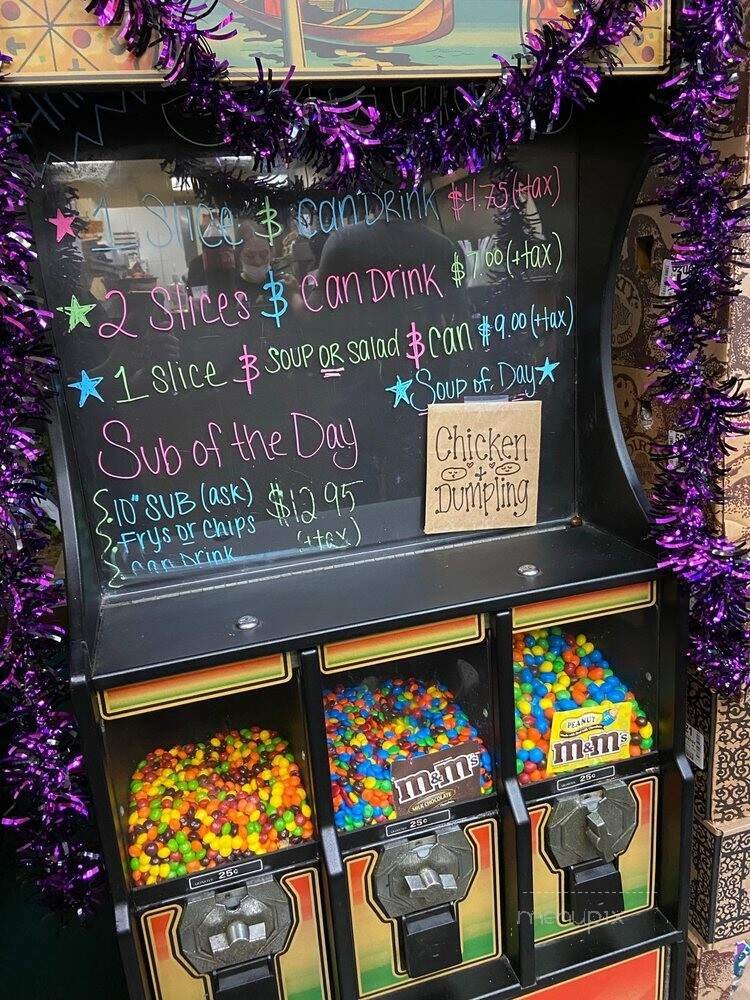 1 Slice & Can Drink $4.75 (+tax)
2 Slices & Can Drink $7.00 (+tax)
1 slice & soup OR salad & can $9.00 (+tax)
Soup of Day
Sub of the Day
Chicken
+
Dumpling
10" SUB (ask) $12.95
Frys or chips (+tax)
Can Drink
PEANUT
m&m's
m&m's
MILK CHOCOLATE
25¢
25¢
25¢
menupix